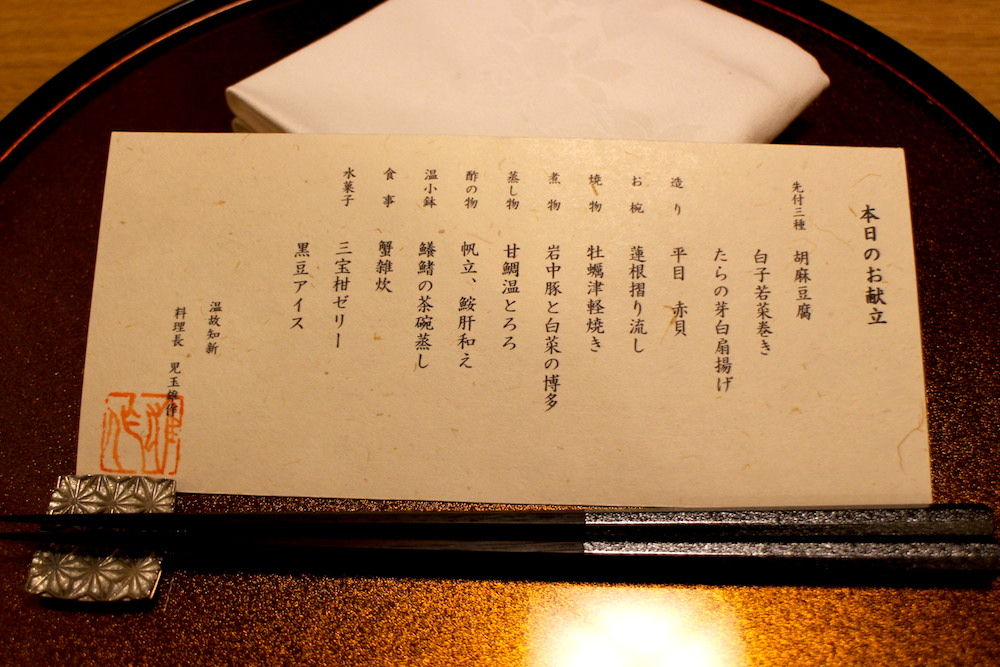 本日のお献立
先付三種 胡麻豆腐
白子若菜巻き
たらの芽白扇揚げ
造り 平目 赤貝
お椀 蓮根摺り流し
焼物 牡蠣津軽焼き
煮物 岩中豚と白菜の博多
蒸し物 甘鯛温とろろ
酢の物 帆立、鮟肝和え
温小鉢 鱶鰭の茶碗蒸し
食事 蟹雑炊
水菓子 三宝柑ゼリー
黒豆アイス
温故知新
料理長 児玉